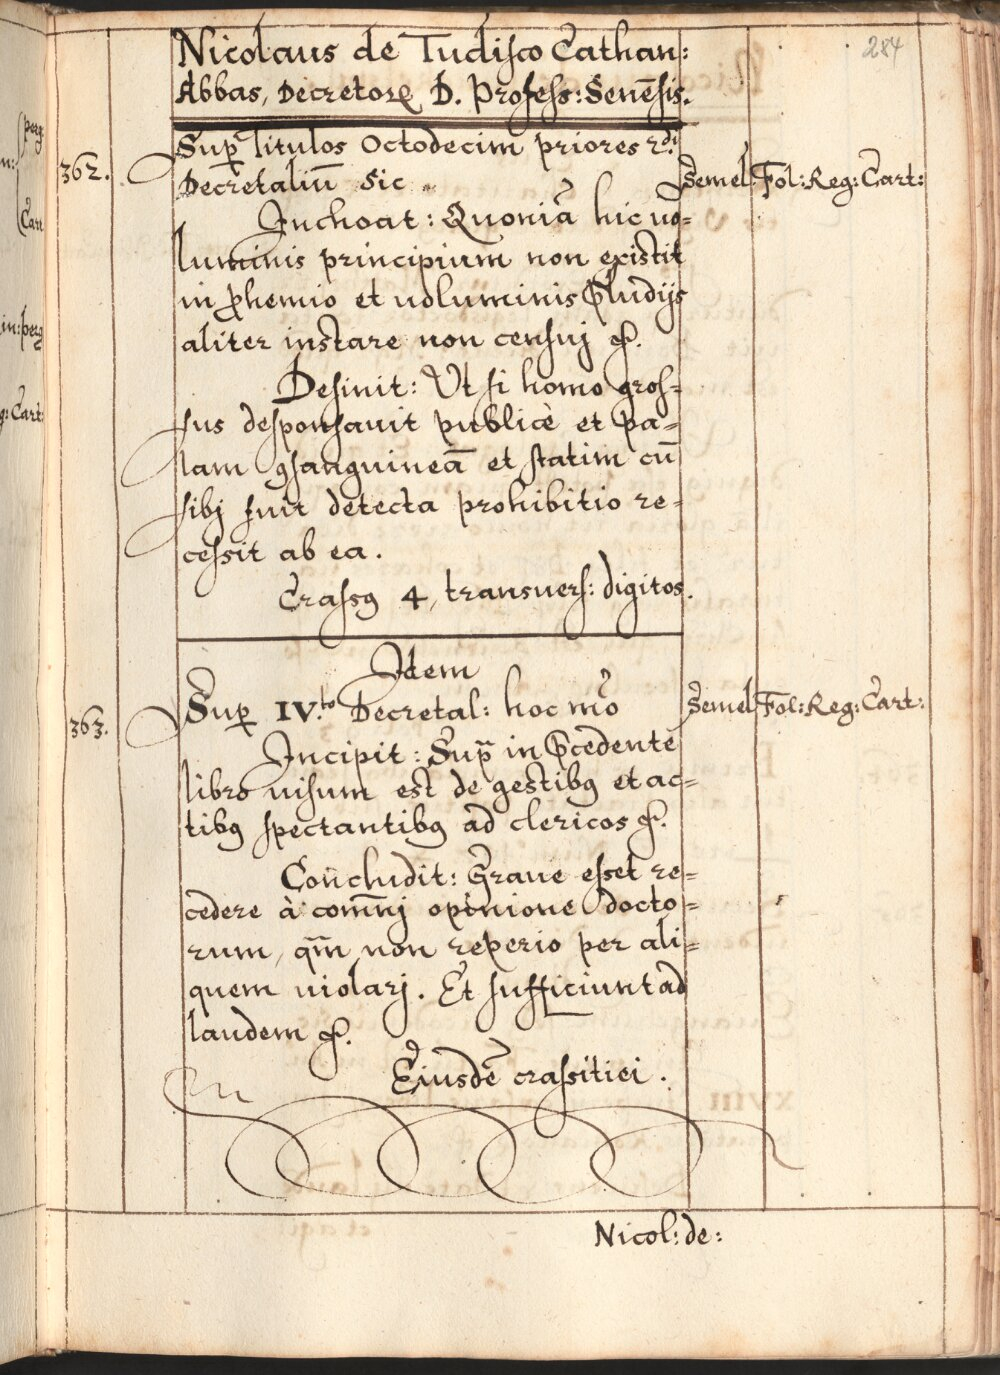 284
Nicolaus de Tudisco Cathan:
Abbas, Decretorꝝ D. Profess: Senēsis.
362.
Sup̱ Titulos Octodecim priores 2.di
Decretaliū sic
Semel: Fol: Reg: Cart:
Inchoat: Quoniā hic uo=
luminis principium non existit
in ꝓhemio et uoluminis p̄ludijs
aliter instare non censuj &.
Desinit: Ut si homo gros=
sus desponsauit publicè et pa=
lam ꝯsanguineā et statim cū
sibj fuit detecta prohibitio re=
cessit ab ea.
Crassꝰ 4, transuers: digitos.
Idem
363.
Sup̱ IV.to Decretal: hoc mō
Semel Fol: Reg: Cart:
Incipit: Sup̄ in p̄cedente
libro uisum est de gestibꝰ et ac=
tibꝰ spectantibꝰ ad clericos &.
Concludit: Graue esset re=
cedere à com̄nj opinione docto=
rum, qm̄ non reperio per ali=
quem uiolarj. Et sufficiunt ad
laudem &.
Eiusdē crassitiei.
Nicol: de: